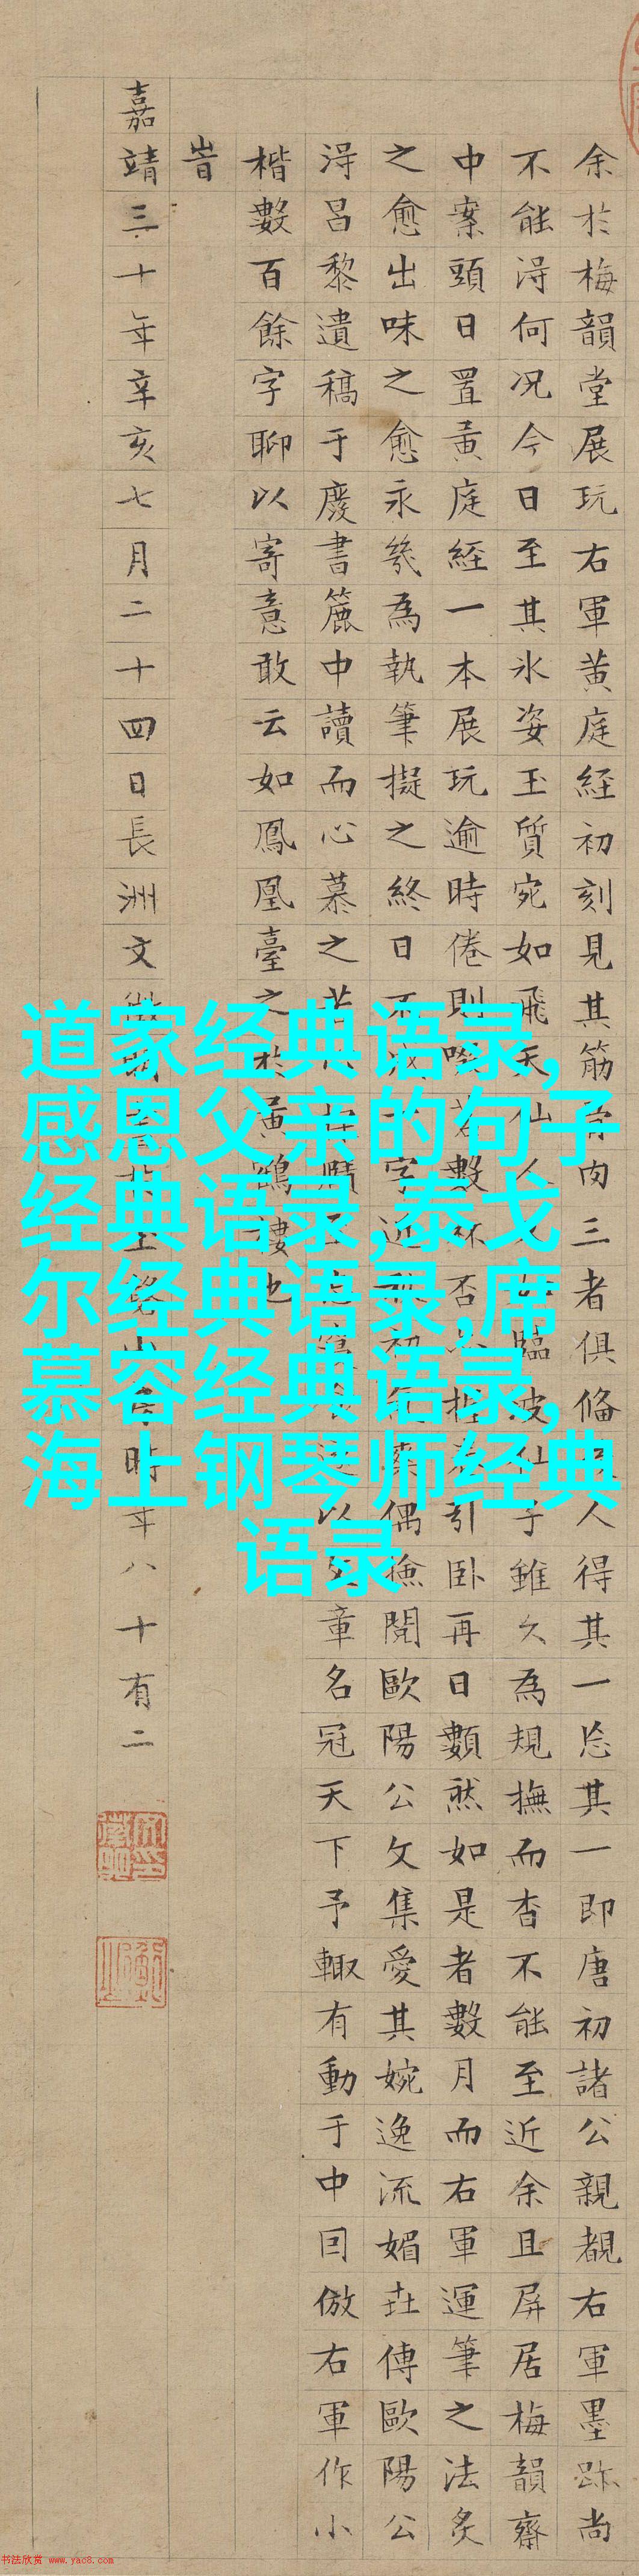 余於梅韻堂展玩右軍黄庭経初刻見其筋肉三者俱偹人得其一忘其一即唐初諸公親覩右軍墨跡尚
不能淂何况今日至其氷姿玉質宛如飛天仙人臨波仙子雖久為規撫而杳不能至近余且屏居梅韻齋
中案頭日置黄庭経一本展玩逾時倦則數杯否引臥再日數然如是者數月而右軍運筆之法炙
之愈出味之愈永幾為執筆擬之終日不字近初偶撿閲歐陽公文集愛其婉逸流媚丗傳歐陽公
淂呂黎遺稿于廢書簏中讀而心慕之以章名冠天下予輙有動于中因倣右軍作小
楷數百餘字聊以寄意敢云如鳳凰臺之於黄鶴樓也
旹
嘉靖三十年辛亥七月二十四日長洲文徵明時年八十有二
道家经典语录,
感恩父亲的句子
经典语录,泰戈
尔经典语录,席
慕容经典语录,
海上钢琴师经典
语录
书法欣赏 www.yac8.com